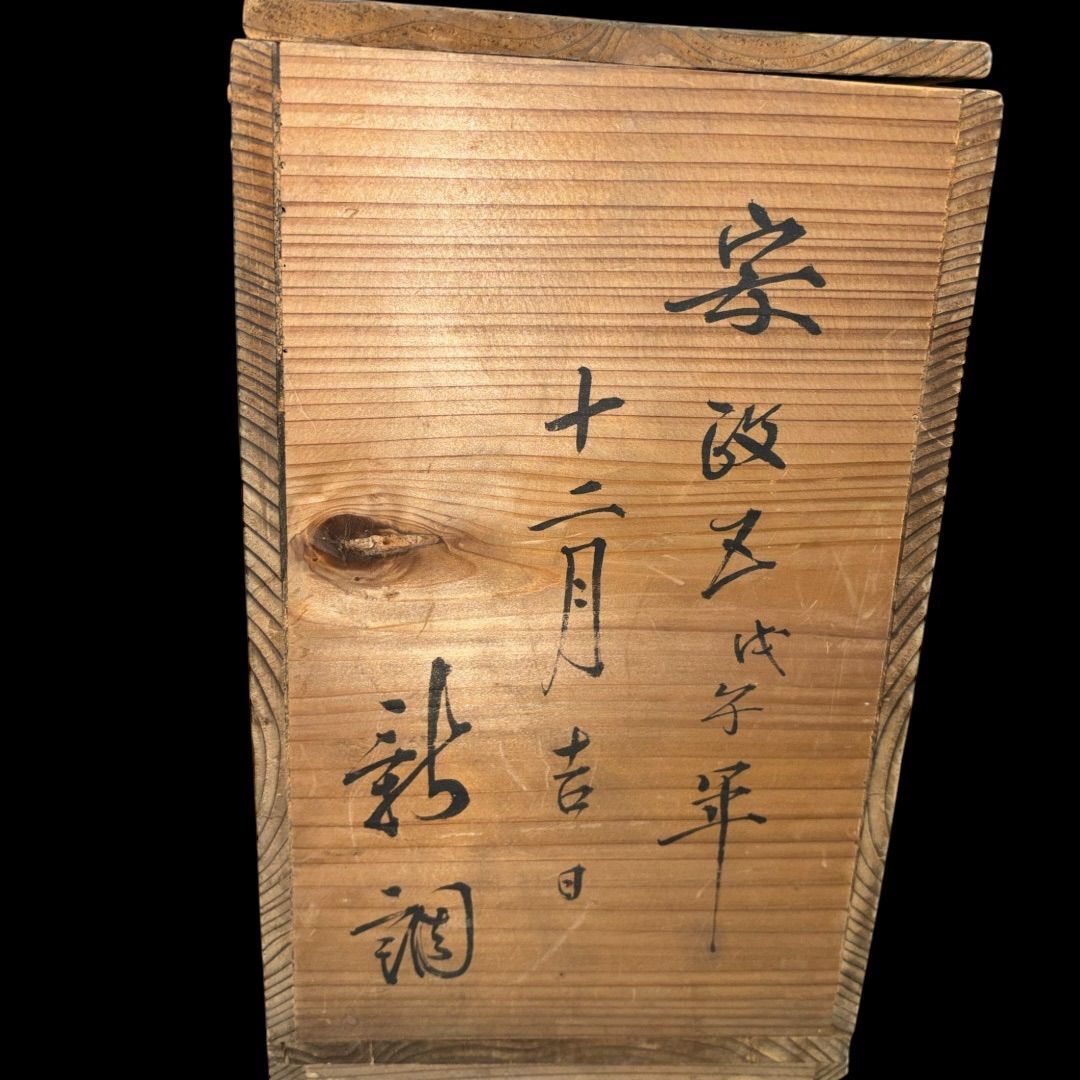 安政五戊午年
十二月吉日
新調